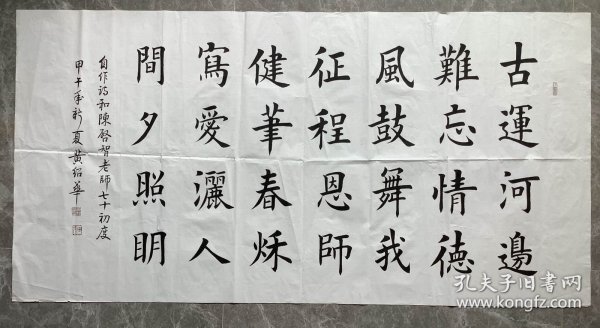 古運河邊
難忘情德
風鼓舞我
征程恩師
健筆春秌
寫愛灑人
間夕照明
自作詩和陳啓智老師七十初度
甲午年新夏黃紹華
孔夫子旧书网
www.kongfz.com